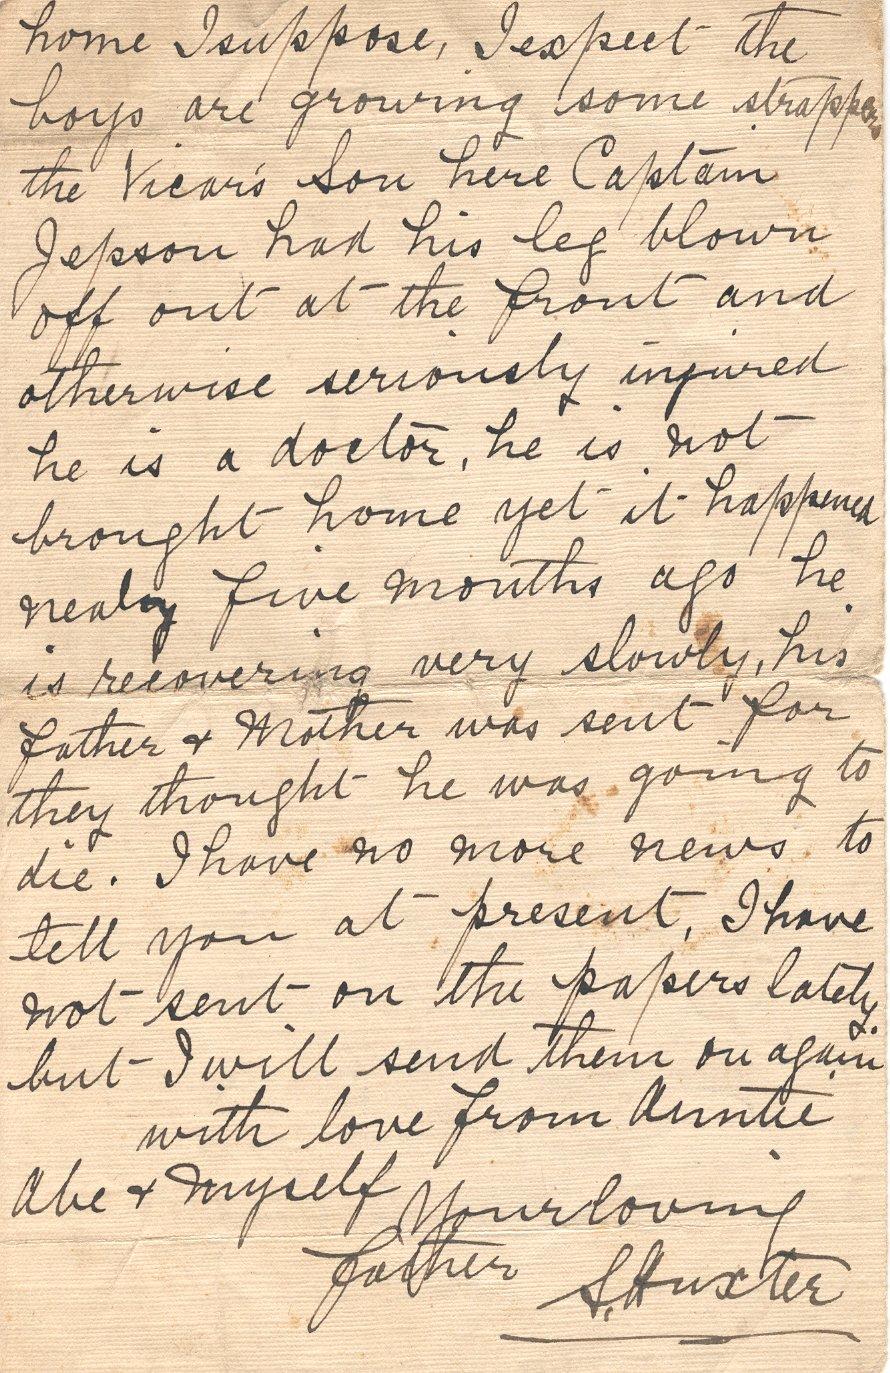 home I suppose, I expect the
boys are growing some strappers
the Vicar's Son here Captain
Jepson had his leg blown
off out at the front and
otherwise seriously injured
he is a doctor, he is not
brought home yet it happened
nealy five months ago he
is recovering very slowly, his
father & Mother was sent for
they thought he was going to
die. I have no more news to
tell you at present, I have
not sent on the papers lately.
but I will send them on again
with love from Auntie
Abe & Myself
Your loving
father S. Huxter